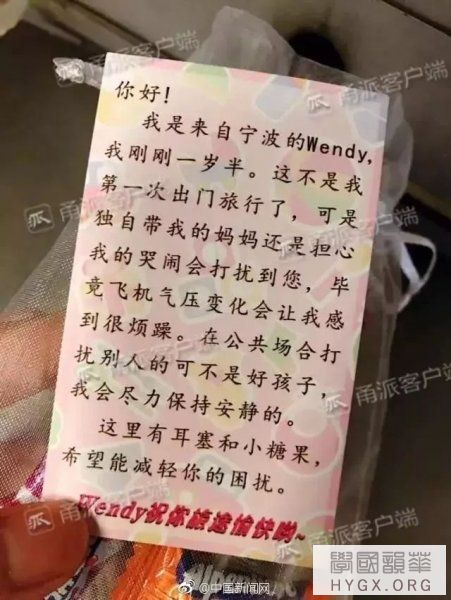 你好!
我是来自宁波的Wendy,
我刚刚一岁半。这不是我
第一次出门旅行了，可是
独自带我的妈妈还是担心
我的哭闹会打扰到您，毕
竟飞机气压变化会让我感
到很烦躁。在公共场合打
扰别人的可不是好孩子，
我会尽力保持安静的。
这里有耳塞和小糖果，
希望能减轻你的困扰。
Wendy祝你旅途愉快哟~
甬派客户端
甬派客户端
甬派客户端
甬派客户端
甬派客户端
甬派客户端
@中国新闻网
學國韻華
HYGX.ORG